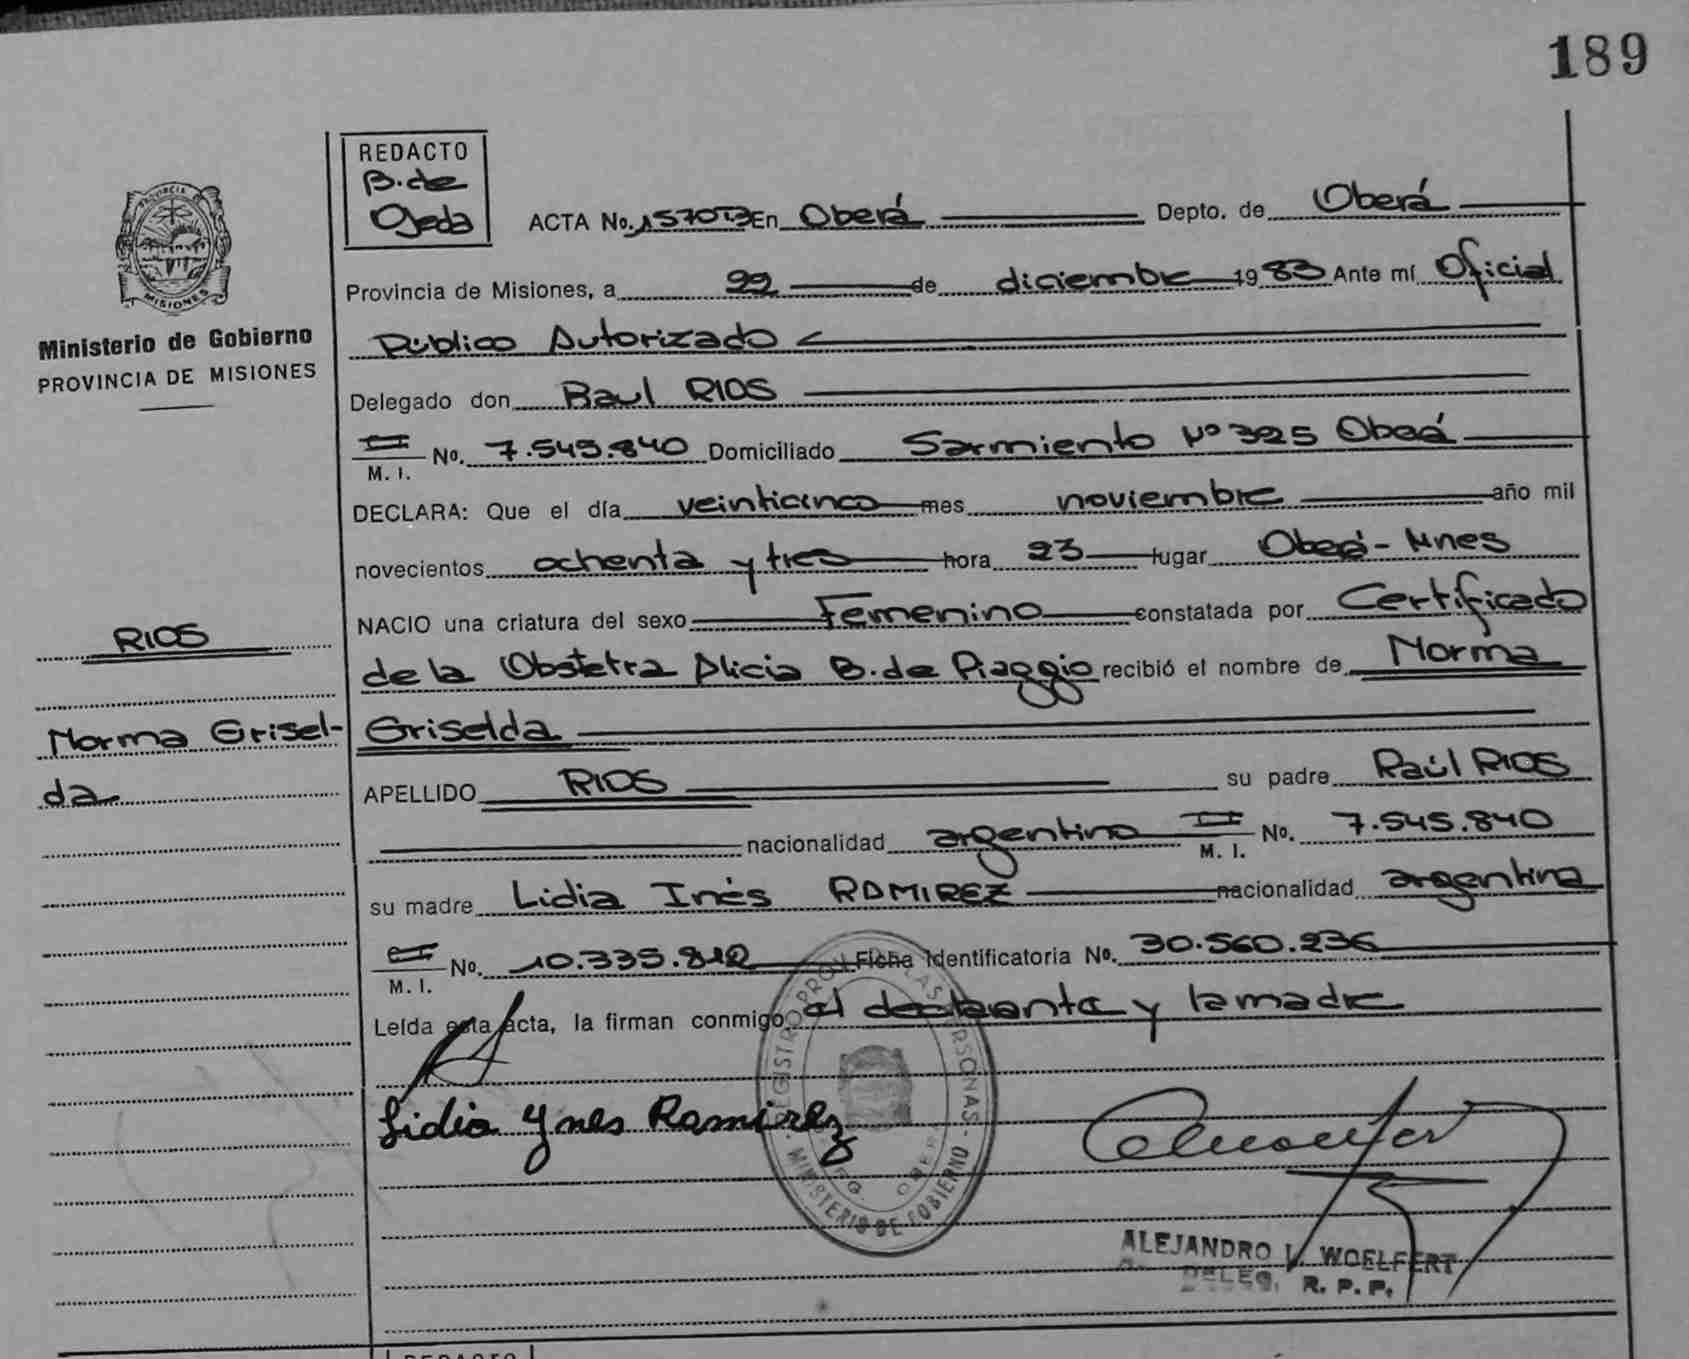 189
REDACTO
B. de
Ojeda
ACTA No. En Oberá Depto. de Oberá
PROVINCIA
MISIONES
Provincia de Misiones, a 22 de diciembre 1983 Ante mí Oficial
Ministerio de Gobierno
PROVINCIA DE MISIONES
Público Autorizado
Delegado don Raul RIOS
M. I. No. 7.545.840 Domiciliado Sarmiento Nº 325 Oberá
DECLARA: Que el día veinticinco mes noviembre año mil
novecientos ochenta y tres hora 23 lugar Oberá - Mnes
NACIO una criatura del sexo Femenino constatada por Certificado
RIOS
de la Obstetra Alicia B. de Piaggio recibió el nombre de Norma
Norma Grisel-
da
Griselda
APELLIDO RIOS su padre Raúl RIOS
nacionalidad argentino M. I. No. 7.545.840
su madre Lidia Inés RAMIREZ nacionalidad argentina
M. I. No. 10.335.812 Ficha Identificatoria No. 30.560.236
Leída esta acta, la firman conmigo el declarante y la madre
Lidia Ynes Ramirez
MINISTERIO DE GOBIERNO
ALEJANDRO WOELFERT
DELEG. R. P. P.
REDACTO